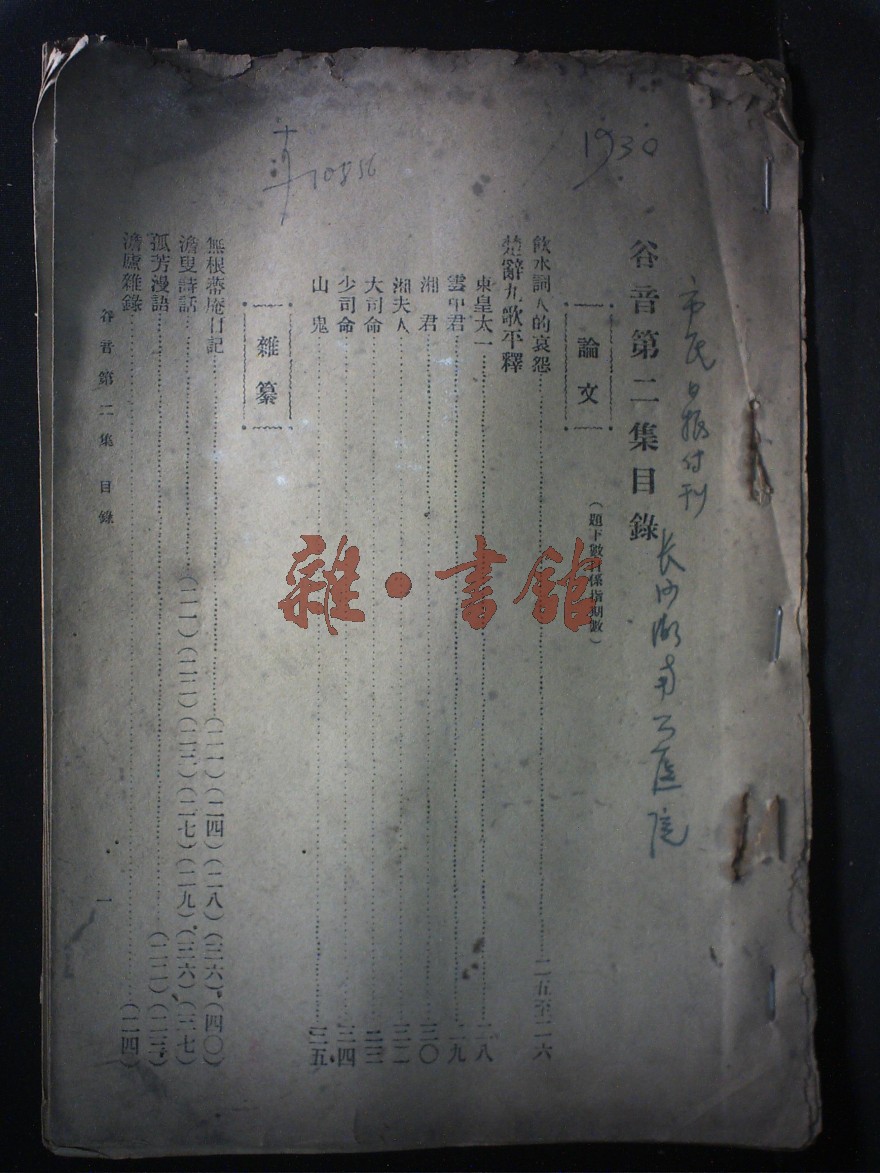 1930
10856
市民日报付刊 长沙湖南公医院
谷音第二集目錄
（題下數目係指期數）
論文
飲水詞人的哀怨 二五至二六
楚辭九歌平釋
東皇太一 二八
雲中君 二九
湘君 三〇
湘夫人 三二
大司命 三三
少司命 三四
山鬼 三五
雜纂
無根藤庵日記 （二一）（二四）（二八）（三六）（四〇）
澹叟詩話 （二一）（二二）（二三）（二七）（二九）（三六）（三七）
孤芳漫語 （二二）（二三）
澹廬雜錄 （二四）
谷音第二集 目錄
一
雜·書館